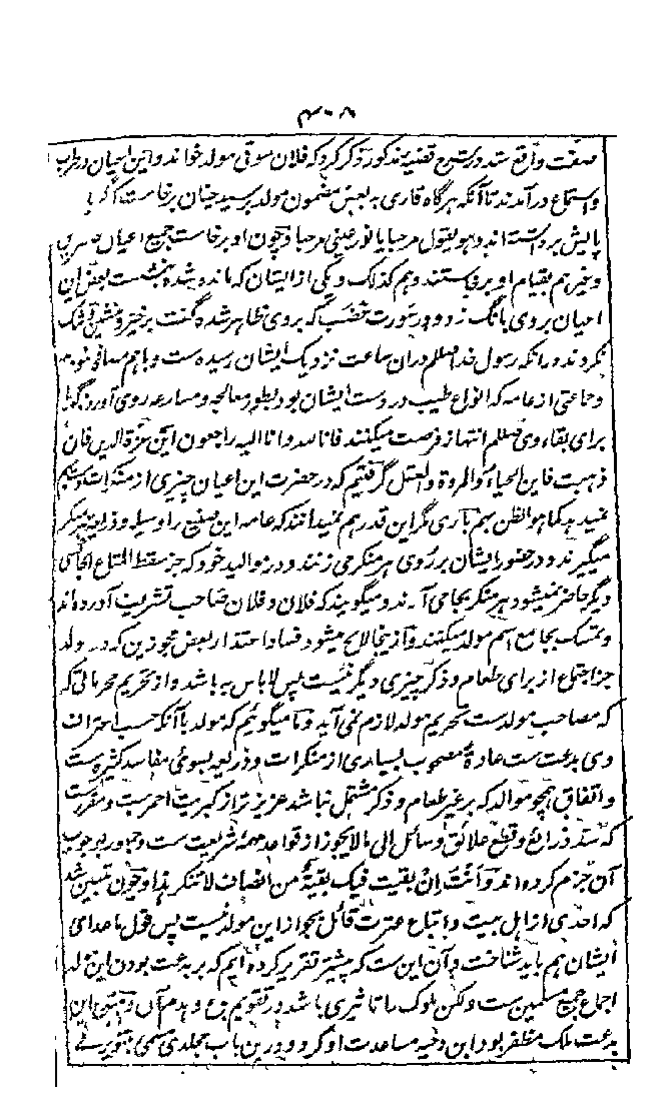 ۳۰۸
صفت واقع شد در شرح قضیه مذکور ذکر کرد که فلان سوقی مولد خواند و این اعیان در طرب
و استماع در آمدند تا آنکه هرگاه قاری به بعض مضمون مولد برسید چنان برخاست که گویا
پایش برداشته اند و هو یقول مرحبا یا نور عینی مرحبا و چون او برخاست جمیع اعیان
و غیرهم بقیام او برخاستند و هم کذلک و یکی از ایشان که مانده شده بنشست بعض این
اعیان بروی بانگ زد و در صورت غضب که بروی ظاهر شده گفت برخیز و
نکردند در انکه رسول خدا صلعم دران ساعت نزدیک ایشان رسیده ست و باهم مصافحه نموده
و جماعتی از عامه که انواع طیب در دست ایشان بود بطور معالجه و مسارعه روی آوردند
برای بقاء وی صلعم انتهاز فرصت میکنند فانا لله وانا الیه راجعون این عزة الدین فان
ذهبت فاین الحیاء والمروة والعقل گرفتیم که در حضرت این اعیان چیزی از منکرات
نمیبود کما هو الظن بهم باری مگر این قدر هم نمیدانند که عامه این صنیع را وسیله و ذریعه
میگیرند و در حضور ایشان بر روی هر منکر می زنند و در موالید خود که جز سقط المتاع
دیگر حاضر نمیشود هر منکر بجا می آرند و میگویند که فلان و فلان صاحب تشریف آورده اند
و تمسک بجامع اسم مولد میکنند و از ینجا لایح میشود فساد اعتذار بعض مجوزین که در مولد
جز اجتماع از برای طعام و ذکر چیزی دیگر نیست پس لا باس به باشد و از تحریم محرماتی
که مصاحب مولدست تحریم مولد لازم نمی آید و ما میگوئیم که مولد با آنکه حسب اعتراف
وی بدعت ست عادة مصحوب بسیاری از منکرات و ذریعه بسوئی مفاسد کثیره ست
و اتفاق همچو موالد که بر غیر طعام و ذکر مشتمل نباشد عزیز تر از کبریت احمرست و مقررست
که سد ذرائع و قطع علائق وسائل الی ما لا یجوز از قواعد مهمه شریعت ست و جمهور بوجوب
آن جزم کرده اند و انت ان بقیت فیک بقیة من انصاف لا تنکر هذا و چون تبین شد
که احدی از اهل بیت و اتباع عترت قائل بجواز این مولد نیست پس قول ماعدای
ایشان هم باید شناخت و آن این ست که پیشتر تقریر کرده ایم که بر بدعت بودن این مولد
اجماع جمیع مسلمین ست ولکن ملوک را تاثیری باشد در تقویم بدع و هدم آن و مبتدع این
بدعت ملک مظفر بود ابن دحیه مساعدت او کرد و درین باب مجلدی مسمی بتنویر